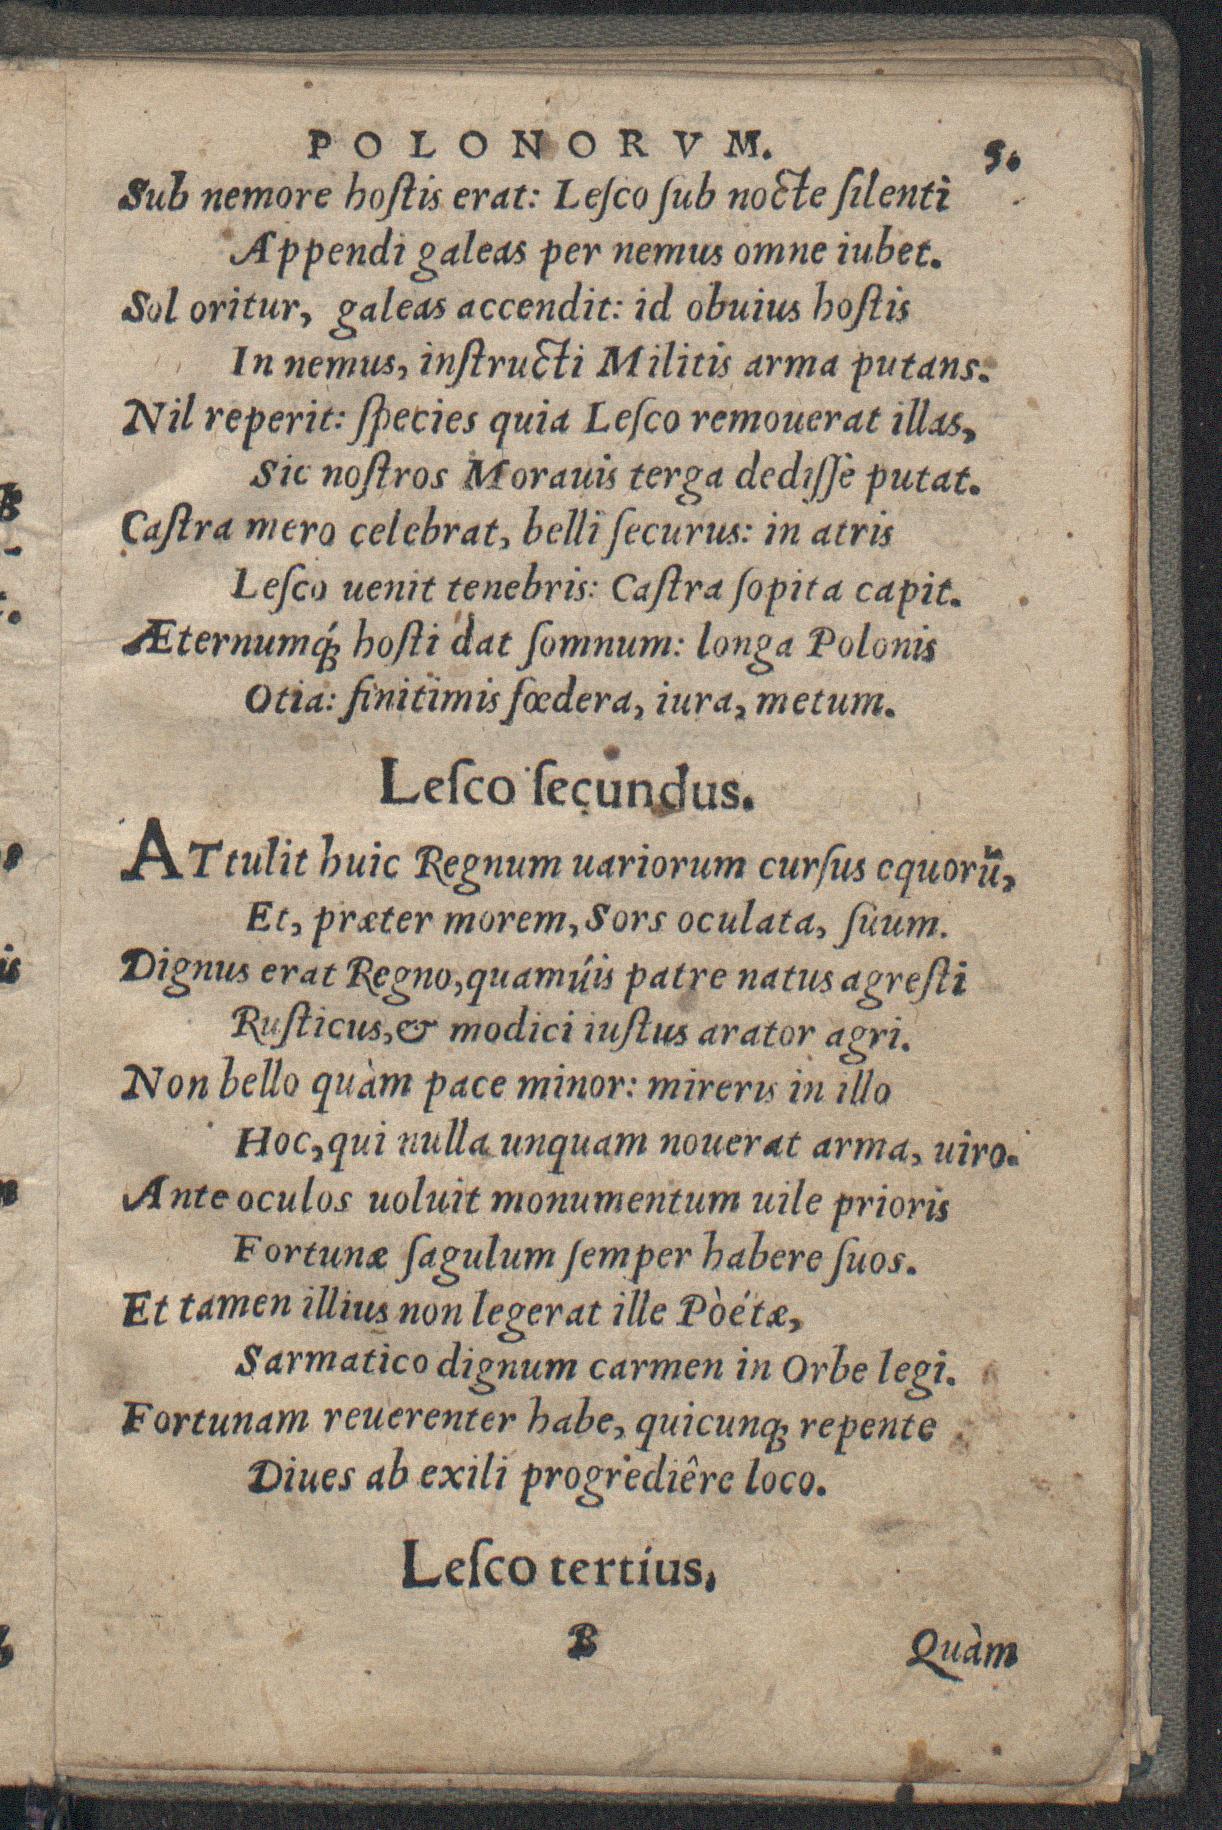 POLONORVM.
5.
Sub nemore hoſtis erat: Leſco ſub nocte ſilenti
Appendi galeas per nemus omne iubet.
Sol oritur, galeas accendit: id obuius hoſtis
In nemus, inſtructi Militis arma putans.
Nil reperit: ſpecies quia Leſco remouerat illas,
Sic noſtros Morauis terga dediſſe putat.
Caſtra mero celebrat, belli ſecurus: in atris
Leſco uenit tenebris: Caſtra ſopita capit.
Æternumq́ꝫ hoſti dat ſomnum: longa Polonis
Otia: finitimis fœdera, iura, metum.
Leſco ſecundus.
ATtulit huic Regnum uariorum curſus equorū,
Et, præter morem, Sors oculata, ſuum.
Dignus erat Regno, quamuis patre natus agreſti
Ruſticus, & modici iuſtus arator agri.
Non bello quàm pace minor: mireris in illo
Hoc, qui nulla unquam nouerat arma, uiro.
Ante oculos uoluit monumentum uile prioris
Fortunæ ſagulum ſemper habere ſuos.
Et tamen illius non legerat ille Pòétæ,
Sarmatico dignum carmen in Orbe legi.
Fortunam reuerenter habe, quicunqꝫ repente
Diues ab exili progrediêre loco.
Leſco tertius.
B
Quàm